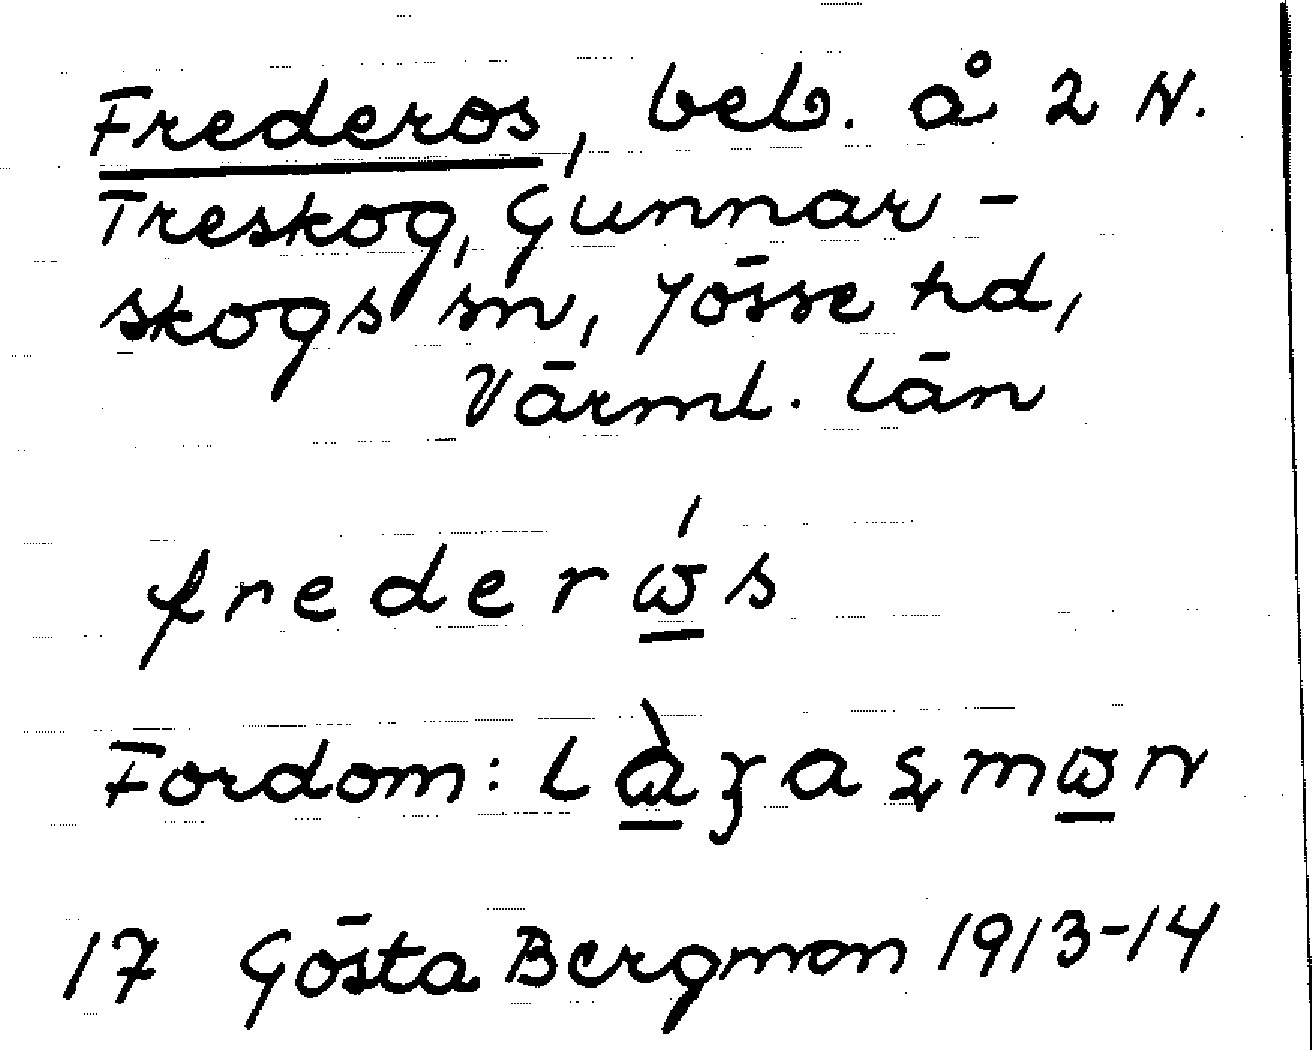 Frederos, beb. å 2 N.
Treskog, Gunnar-
skogs sn, Jösse hd,
Värml. län
frederώs
Fordom: lὰɀasmωn
17 Gösta Bergman 1913-14